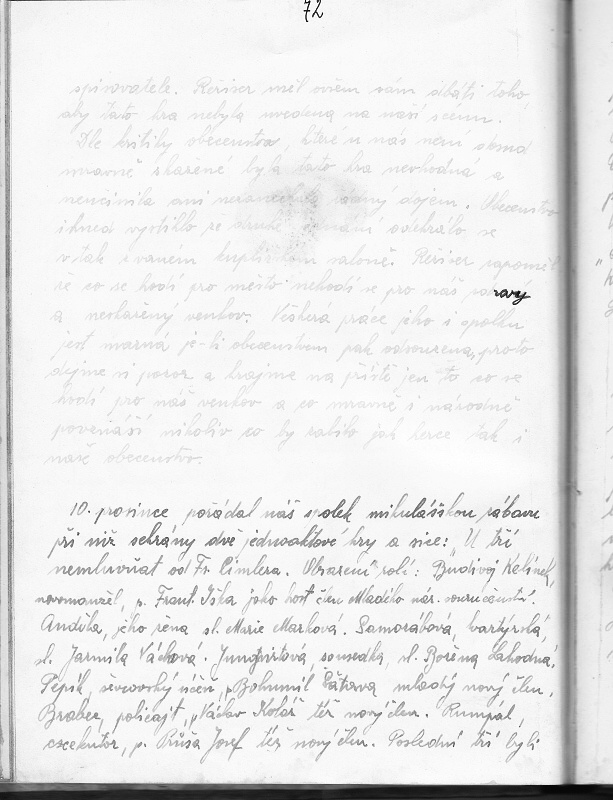 72
spisovatele. Režiser měl ovšem sám dbáti toho
aby tato hra nebyla uvedena na naší scénu.
Dle kritiky obecenstva, které u nás není skrud
mravně zkažené byla tato hra nevhodná a
neučinila ani nezanechala žádný dojem. Obecenstvo
ihned vycítilo že druhé jednání odehrálo se
v tak zvaném kuplířském saloně. Režiser zapomněl
že co se hodí pro město nehodí se pro náš zdravý
a nezkažený venkov. Veškerá práce jeho i spolku
jest marná je-li obecenstvem pak odsouzena, proto
dejme si pozor a hrajme na příště jen to co se
hodí pro náš venkov a co mravně i národně
povznáší nikoliv co by kazilo jak herce tak i
naše obecenstvo.
10. prosince pořádal náš spolek mikulášskou zábavu
při níž sehrány dvě jednoaktové hry a sice: „U tří
nemluvňat od Fr. Cimlera. Obsazení rolí: Budivoj Kalínek,
novomanžel, p. Frant. Iška jako host člen Mladého nár. souručenství.
Anděla, jeho žena sl. Marie Marková. Samorábová, kvartýrská,
sl. Jarmila Váchová. Jungvirtová, sousedka, sl. Božena Lahodná,
Pepík, ševcovský učeň, p. Bohumil Šátava mladý nový člen,
Braber, policajt, p. Václav Kolář též nový člen. Rumpál,
exekutor, p. Růža Josef též nový člen. Poslední tři byli